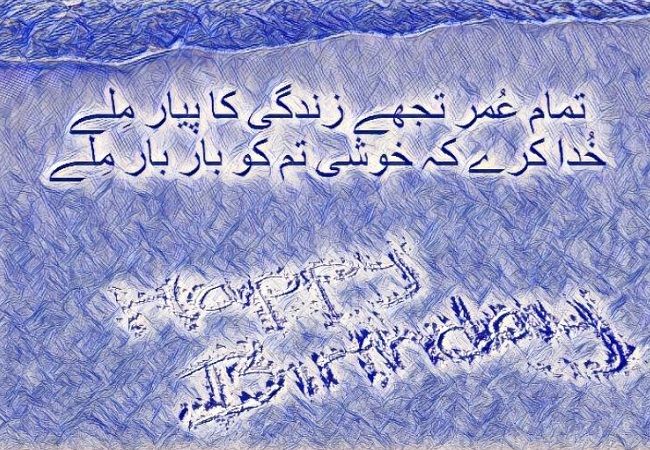 تمام عُمر تجھے زندگی کا پیار مِلے
خُدا کرے کہ خوشی تم کو بار بار مِلے
Happy
Birthday